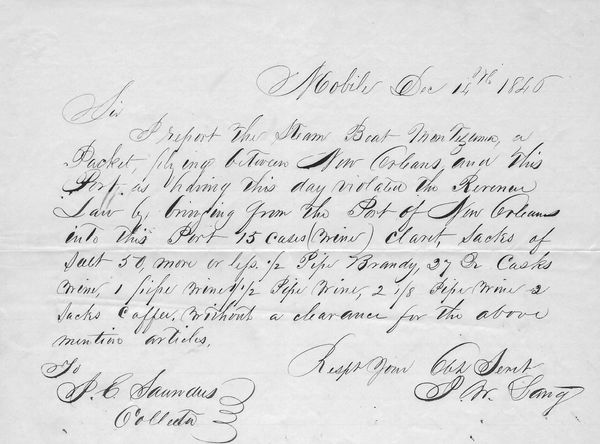 Mobile Dec 14th 1846
Sir
I report the Steam Boat Montezuma, a
Packet, plying between New Orleans, and this
Port, as having this day violated the Revenue
Law by bringing from the Port of New Orleans
into this Port 15 cases (wine) claret, Sacks of
Salt 50, more or less. 1/2 Pipe Brandy, 27 Qr Casks
wine, 1 pipe wine, 1/2 Pipe Wine, 2 1/8 Pipe Wine 2
Sacks Coffee. Without a clearance for the above
mention articles.
Respt Your Obt Servt
To
J. C. Saunders
Collector